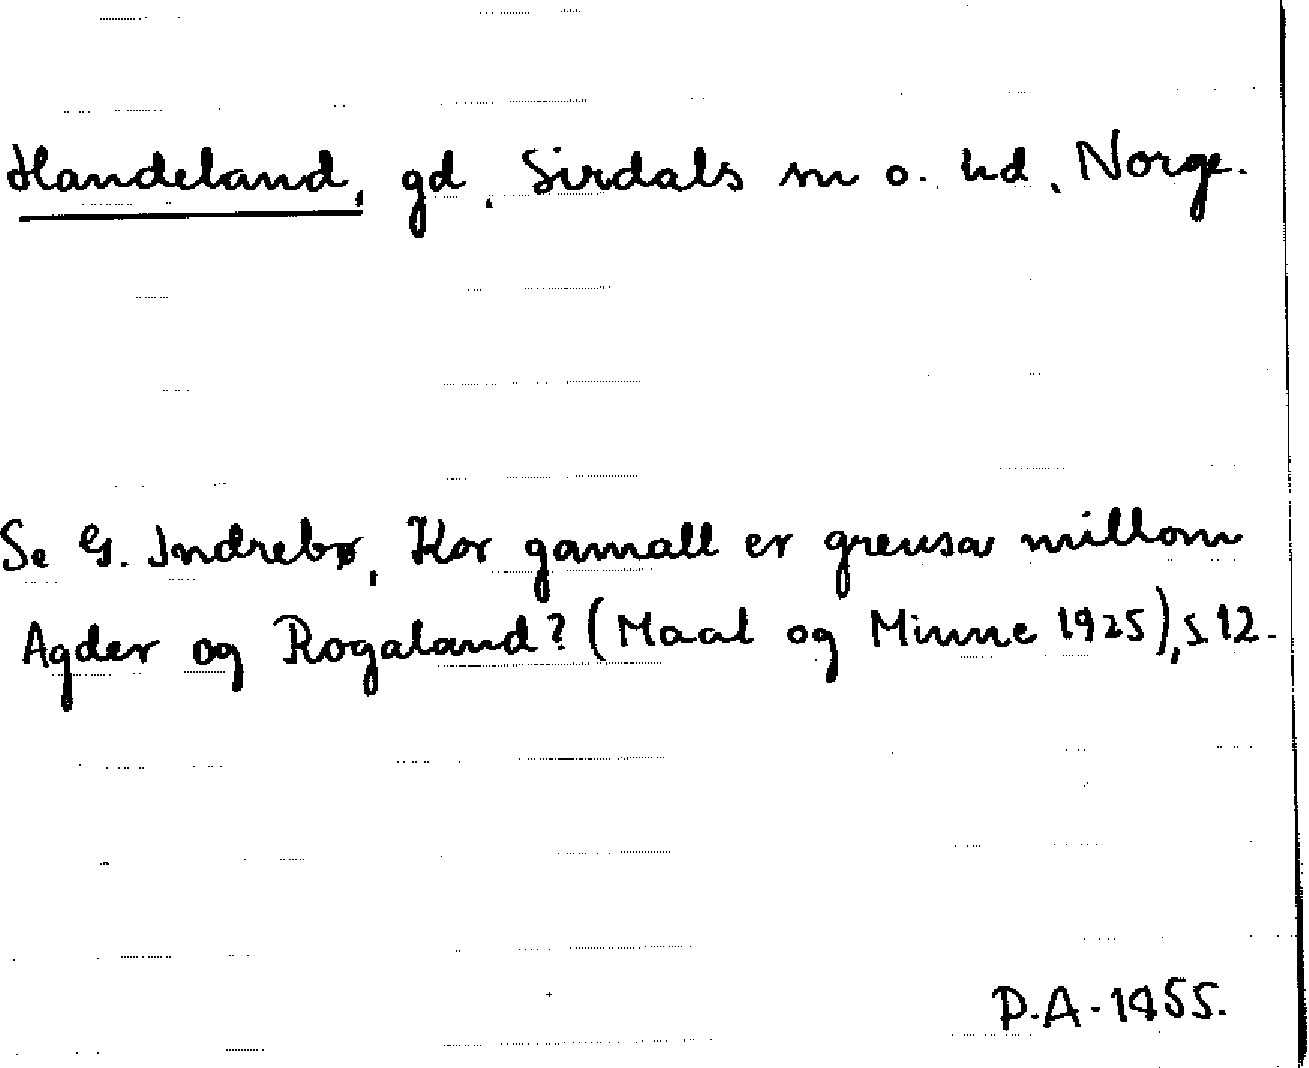 Handeland, gd, Sirdals sn o. hd, Norge.
Se G. Indrebø, Kor gamall er grensa millom
Agder og Rogaland? (Maal og Minne 1925), s 12.
P.A. 1955.